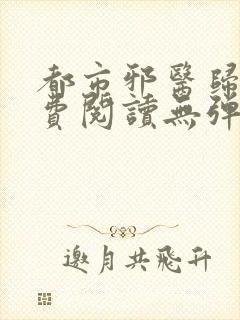 都市邪醫歸
費閱讀無彈
邀月共飛升